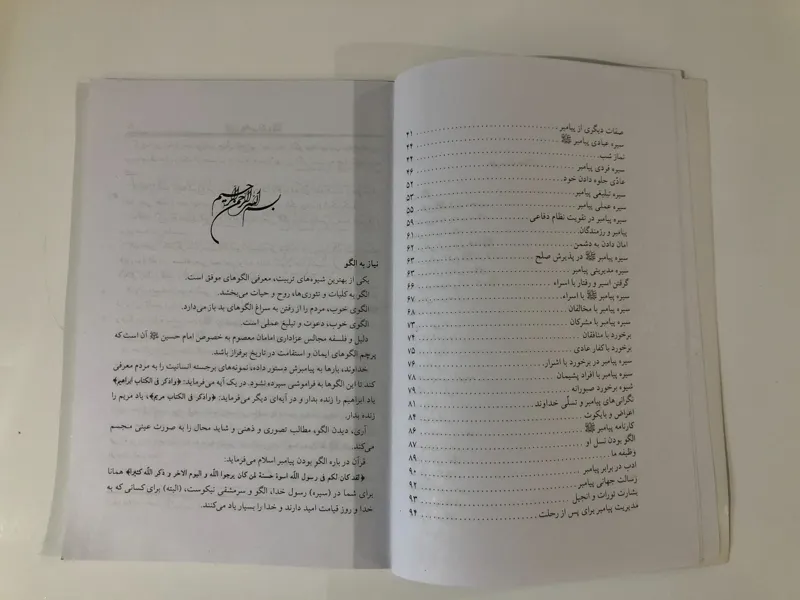 صفات دیگری از پیامبر ........ ۴۱
سیره عبادی پیامبر ﷺ ........ ۴۴
نماز شب ........ ۴۴
سیره فردی پیامبر ........ ۴۶
عادّی جلوه دادن خود ........ ۵۲
سیره تبلیغی پیامبر ........ ۵۳
سیره عملی پیامبر ........ ۵۵
سیره پیامبر در تقویت نظام دفاعی ........ ۵۹
پیامبر و رزمندگان ........ ۶۱
امان دادن به دشمن ........ ۶۲
سیره پیامبر ﷺ در پذیرش صلح ........ ۶۳
سیره مدیریتی پیامبر ........ ۶۳
گرفتن اسیر و رفتار با اسراء ........ ۶۶
سیره پیامبر ﷺ با اسراء ........ ۶۷
سیره پیامبر با مخالفان ........ ۶۸
سیره پیامبر با مشرکان ........ ۷۳
برخورد با منافقان ........ ۷۴
برخورد با کفار عادی ........ ۷۵
سیره پیامبر در برخورد با اشرار ........ ۷۶
سیره پیامبر با افراد پشیمان ........ ۷۸
شیوه برخورد صبورانه ........ ۷۹
نگرانی‌های پیامبر و تسلّی خداوند ........ ۸۱
اعراض و بایکوت ........ ۸۴
کارنامه پیامبر ﷺ ........ ۸۶
الگو بودن نسل او ........ ۸۷
وظیفه ما ........ ۸۹
ادب در برابر پیامبر ........ ۹۰
رسالت جهانی پیامبر ........ ۹۲
بشارت تورات و انجیل ........ ۹۳
مدیریت پیامبر برای پس از رحلت ........ ۹۴
بسم الله الرحمن الرحیم
نیاز به الگو
یکی از بهترین شیوه‌های تربیت، معرفی الگوهای موفق است.
الگو به کلیات و تئوری‌ها، روح و حیات می‌بخشد.
الگوی خوب، مردم را از رفتن به سراغ الگوهای بد باز می‌دارد.
الگوی خوب، دعوت و تبلیغ عملی است.
دلیل و فلسفه مجالس عزاداری امامان معصوم به خصوص امام حسین ﷺ آن است که
پرچم الگوهای ایمان و استقامت در تاریخ برفراز باشد.
خداوند، بارها به پیامبرش دستور داده، نمونه‌های برجسته انسانیت را به مردم معرفی
کند تا این الگوها به فراموشی سپرده نشود. در یک آیه می‌فرماید: ﴿واذکر فی الکتاب ابراهیم﴾
یاد ابراهیم را زنده بدار و در آیه‌ای دیگر می‌فرماید: ﴿واذکر فی الکتاب مریم﴾، یاد مریم را
زنده بدار.
آری، دیدن الگو، مطالب تصوری و ذهنی و شاید محال را به صورت عینی مجسم
می‌کند.
قرآن در باره الگو بودن پیامبر اسلام می‌فرماید:
﴿لقد کان لکم فی رسول اللّه اسوة حسنة لمن کان یرجوا اللّه و الیوم الاخر و ذکر اللّه کثیرا﴾ همانا
برای شما در (سیره) رسول خدا، الگو و سرمشقی نیکوست، (البته) برای کسانی که به
خدا و روز قیامت امید دارند و خدا را بسیار یاد می‌کنند.